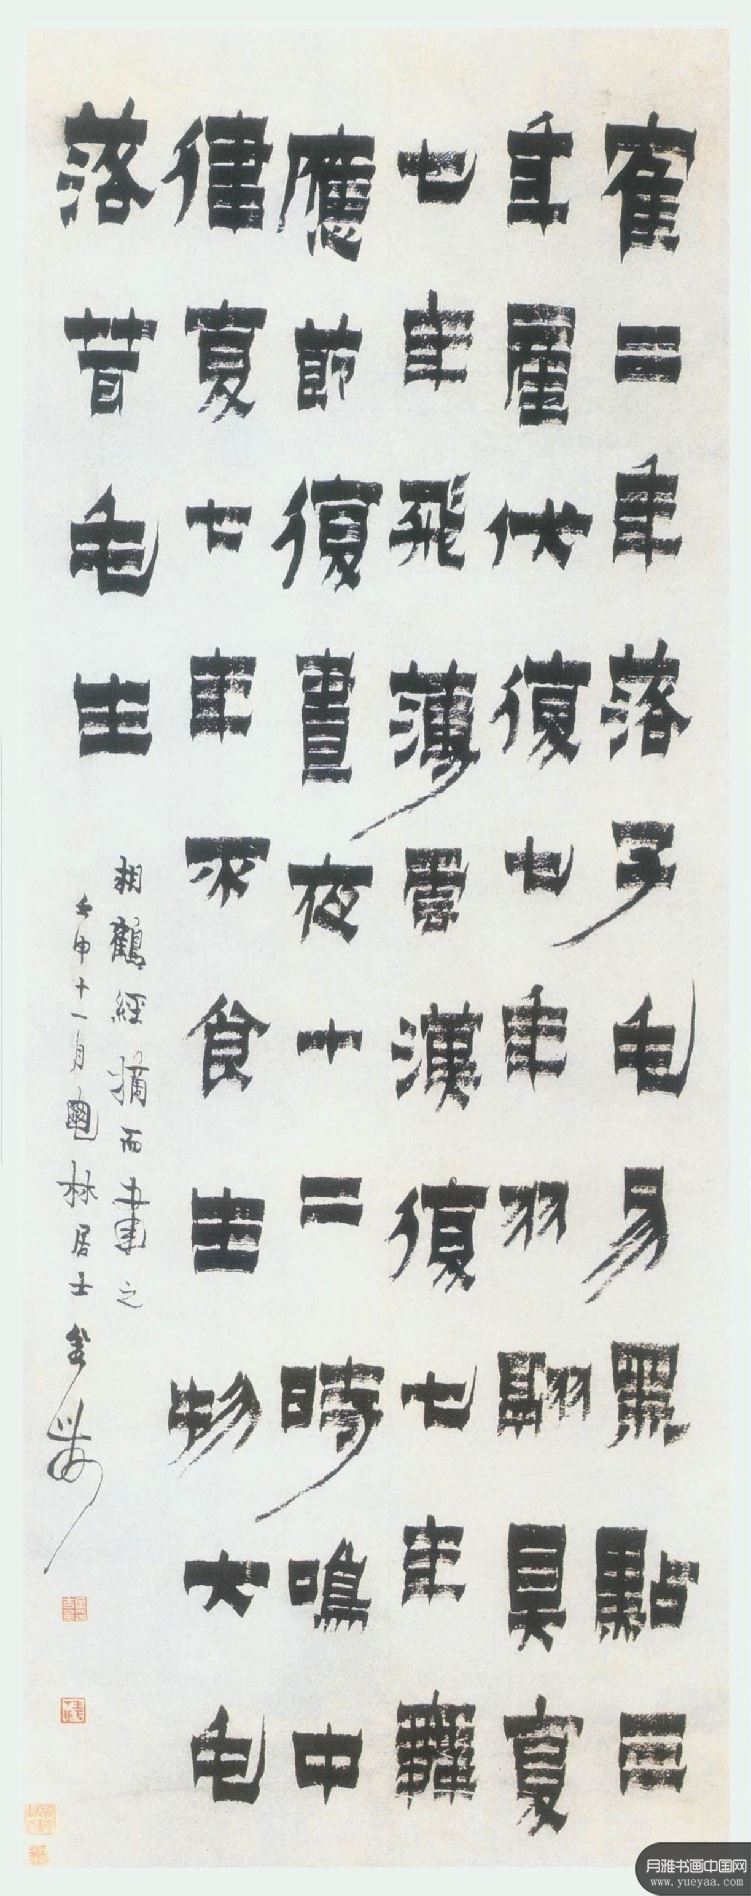 隺二年落子毛易黑點三
年產伏復七年羽翮具夏
七年飛薄雲漢復七年舞
應節復晝夜十二時鳴中
律夏七年不食生物大毛
落茸毛生
相鶴經摘而書之
壬申十一月林居士金農
月雅书画中国网
www.yueyaa.com